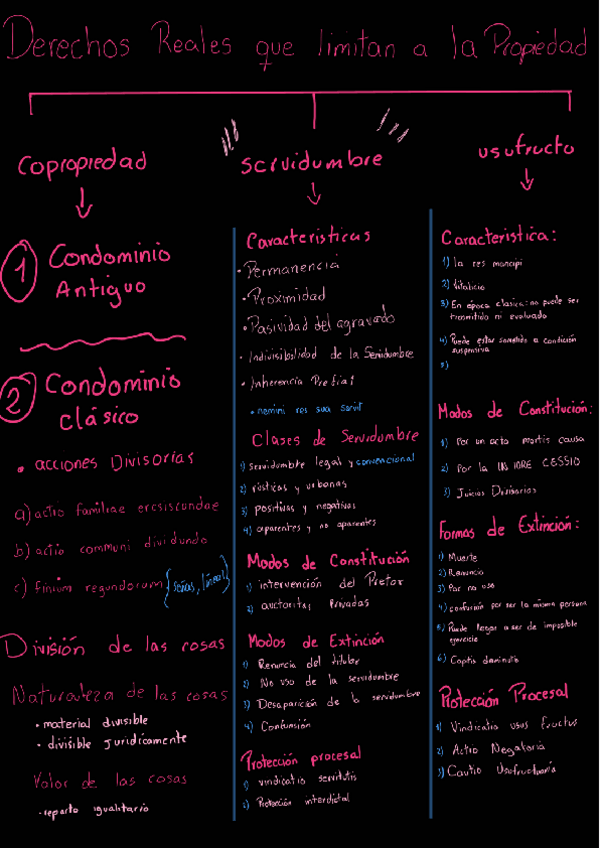 Derechos Reales que limitan a la Propiedad
Copropiedad
1 Condominio
Antiguo
2 Condominio
clásico
• acciones Divisorias
a) actio familiae erciscundae
b) actio communi dividundo
c) finium regundorum {señas, lineal}
División de las cosas
Naturaleza de las cosas
• material divisible
• divisible juridicamente
Valor de las cosas
• reparto igualitario
servidumbre
Caracteristicas
• Permanencia
• Proximidad
• Pasividad del agravado
• Indivisibilidad de la Servidumbre
• Inherencia Predial
• nemini res sua servit
Clases de Servidumbre
1) servidumbre legal y convencional
2) rústicas y urbanas
3) positivas y negativas
4) aparentes y no aparentes
Modos de Constitución
1) intervención del Pretor
2) auctoritas Privadas
Modos de Extinción
1) Renuncia del titular
2) No uso de la servidumbre
3) Desaparición de la servidumbre
4) Confusión
Protección procesal
1) vindicatio servitutis
2) Protección interdictal
usufructo
Caracteristica:
1) la res mancipi
2) Vitalicio
3) En época clasica: no puede ser
transmitido ni
4) Puede estar sometido a condición
suspensiva
5)
Modos de Constitución:
1) Por un acto mortis causa
2) Por la IN IURE CESSIO
3) Juicios Divisorios
Formas de Extinción:
1) Muerte
2) Renuncia
3) Por no uso
4) confusión por ser la misma persona
5) Puede llegar a ser de imposible
ejercicio
6) Capitis deminutio
Protección Procesal
1) Vindicatio usus fructus
2) Actio Negatoria
3) Cautio Usufructuaria